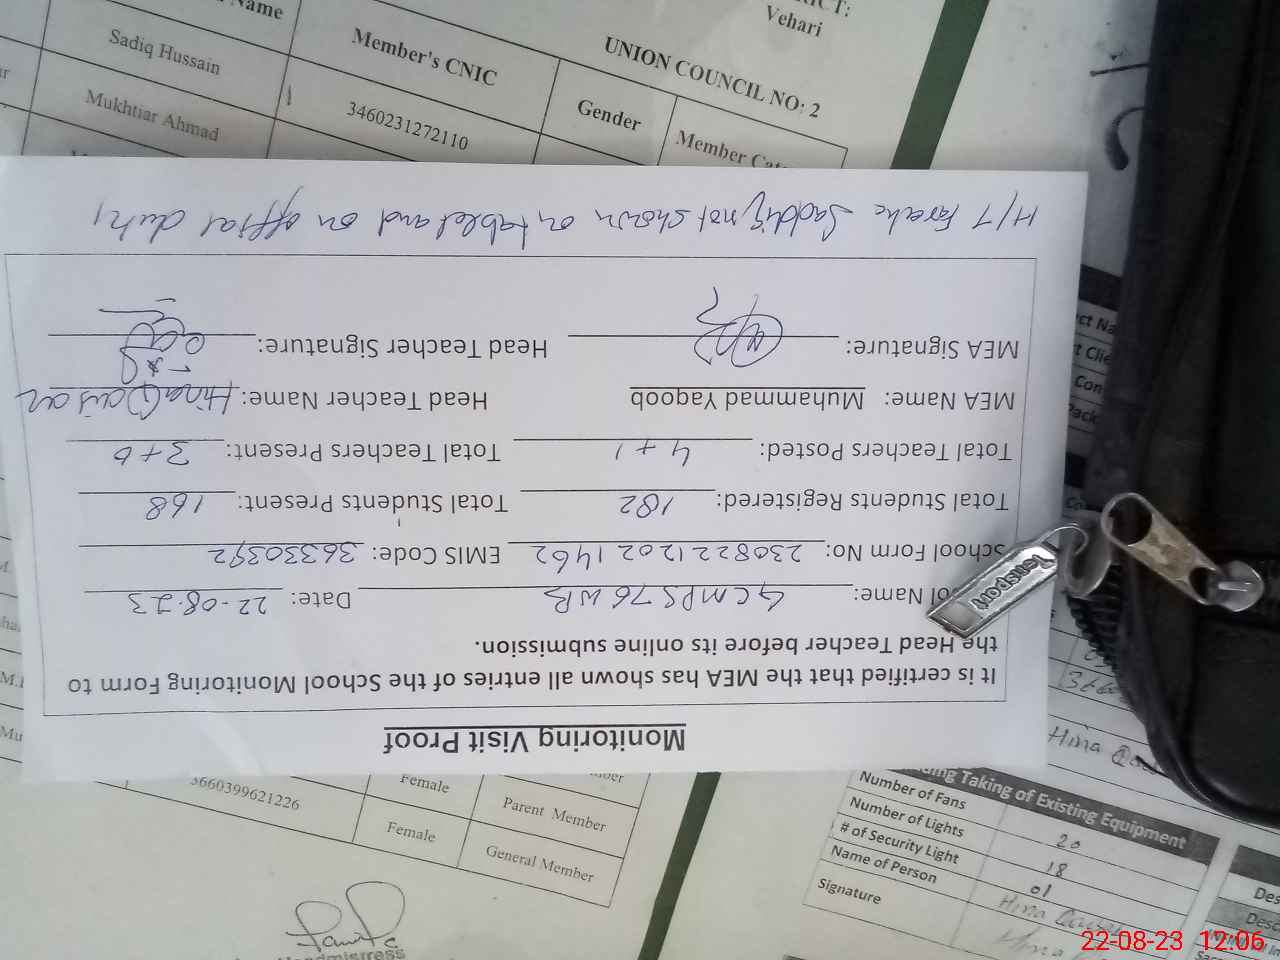 Name
Member's CNIC
UNION COUNCIL NO: 2
Vehari
Sadiq Hussain
3460231272110
Gender
Mukhtiar Ahmad
Monitoring Visit Proof
It is certified that the MEA has shown all entries of the School Monitoring Form to
the Head Teacher before its online submission.
Name: GCMPS 76 WB Date: 22-08-23
School Form No: 2308221202 1462 EMIS Code: 36330392
Total Students Registered: 182 Total Students Present: 168
Total Teachers Posted: 4+1 Total Teachers Present: 3+0
MEA Name: Muhammad Yaqoob Head Teacher Name: Hina Qaisar
MEA Signature: Head Teacher Signature:
not shown on tablet and on offial duty
Tensport
3660399621226
Female
Parent Member
Female
General Member
Hina
Taking of Existing Equipment
Number of Fans 20
Number of Lights 18
# of Security Light 01
Name of Person Hina
Signature Hina
22-08-23 12:06